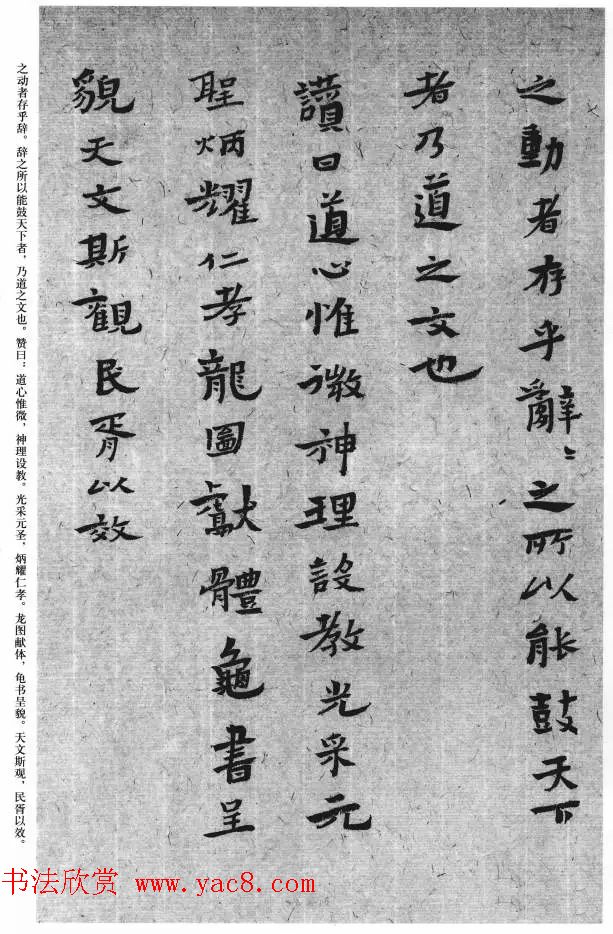 之動者存乎辭〻之所以能鼓天下
者乃道之文也
讚曰道心惟微神理設教光采元
聖炳耀仁孝龍圖獻體龜書呈
貌天文斯觀民胥以效
之动者存乎辞。辞之所以能鼓天下者，乃道之文也。赞曰：道心惟微，神理设教。光采元圣，炳耀仁孝。龙图献体，龟书呈貌。天文斯观，民胥以效。
书法欣赏 www.yac8.com